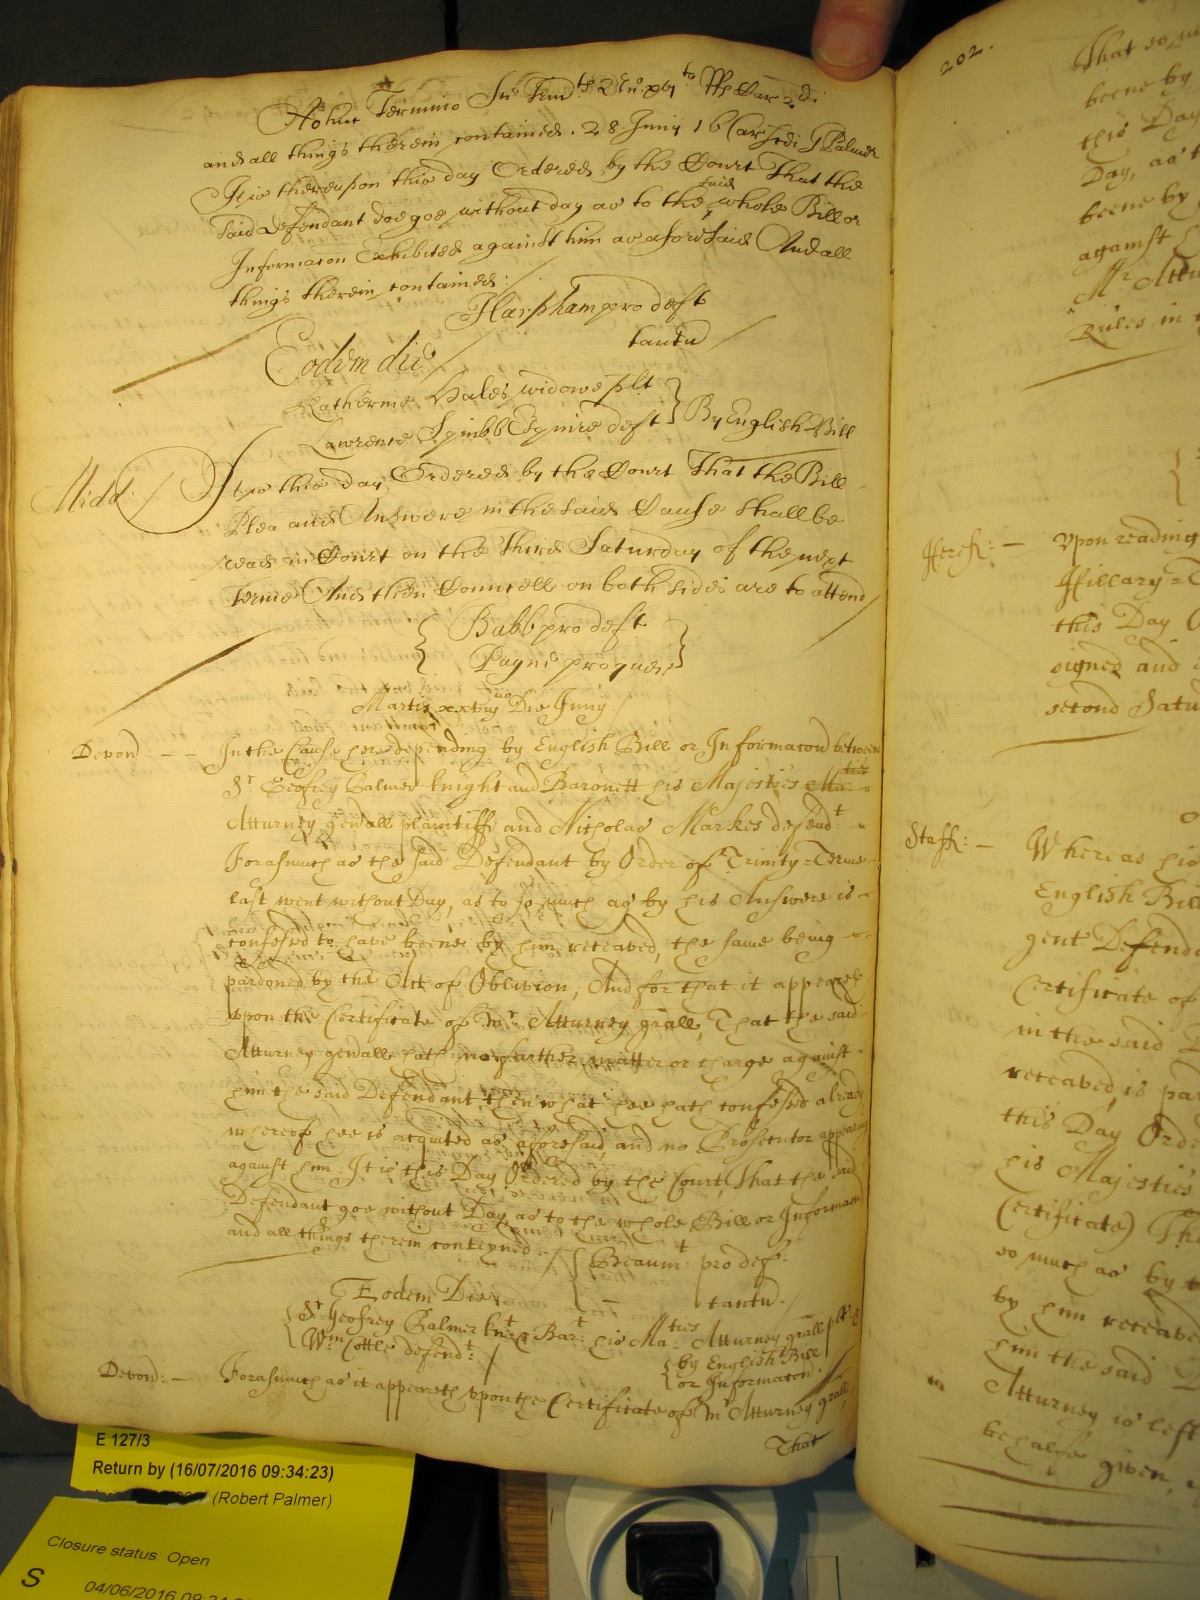 Adhuc Termino Sce Trinitis Ano xvi to Rs Car 2 di
and all things therein contained. 28 Junij 16 Car scdi J Palmer
It is thereupon this day Ordered by the Court That the
said defendant doe goe without day as to the said whole Bill or
Informacon Exhibited against him as aforesaid And all
things therein contained:
Harpham pro deft
tantu
Eodem die
Katherine Hales widowe plt
Lawrence Squibb Esquire deft } By English Bill
Midd: It is this day Ordered by the Court That the Bill
Plea and Answere in the said Cause shall be
read in Court on the third Saturday of the next
Terme And then Councell on both sides are to attend
{ Babb pro deft
Payne pro quer }
Martis xxviij uo Die Junij
Devon: - - In the Cause here depending by English Bill or Informacon betweene
Sr Geofrey Palmer knight and Baronett his Majesties
Atturney gen'all plaintiff and Nicholas Markes defend t
Forasmuch as the said Defendant by Order of Trinity=Terme
last went without Day, as to so much as by his Answere is
confessed to have beene by him receaved, the same being
pardoned by the Act of Oblivion, And for that it appeareth
upon the Certificate of Mr Atturney g'rall, That the said
Atturney gen'dall hath no farther matter or charge against
him the said Defendant, then what hee hath confessed already
whereof hee is acquited as aforesaid, and no Prosecutor appearing
against him: It is this Day Ordered by the Court, That the said
Defendant goe without Day, as to the whole Bill or Informacon
and all things therein conteyned
{ Beaum t pro def:
tantu
Eodem Die
{ Sr Geofrey Palmer kn t & Bar t his Ma ties Atturney g'rall plt
Wm Cottle defend t:
{ by English Bill
or Informacon
Devon: - Forasmuch as it appeareth upon the Certificate of Mr Atturney g'rall,
That
202.
That so mu
beene by
this Day
Day, as t
beene by
against
Mr Attu
Rules in
Heref: - Upon reading
Hillary=T
this Day O
signed and
second Satu
Staff: - Whereas his
English Bill
gent Defend
Certificate of
in the said
receaved, is par
this Day Ord
his Majesties
Certificate) Th
so much as by t
by him receave
him the said
Atturney is left
behalfe given,
E 127/3
Return by (16/07/2016 09:34:23)
(Robert Palmer)
Closure status: Open
S
04/06/2016 09:3